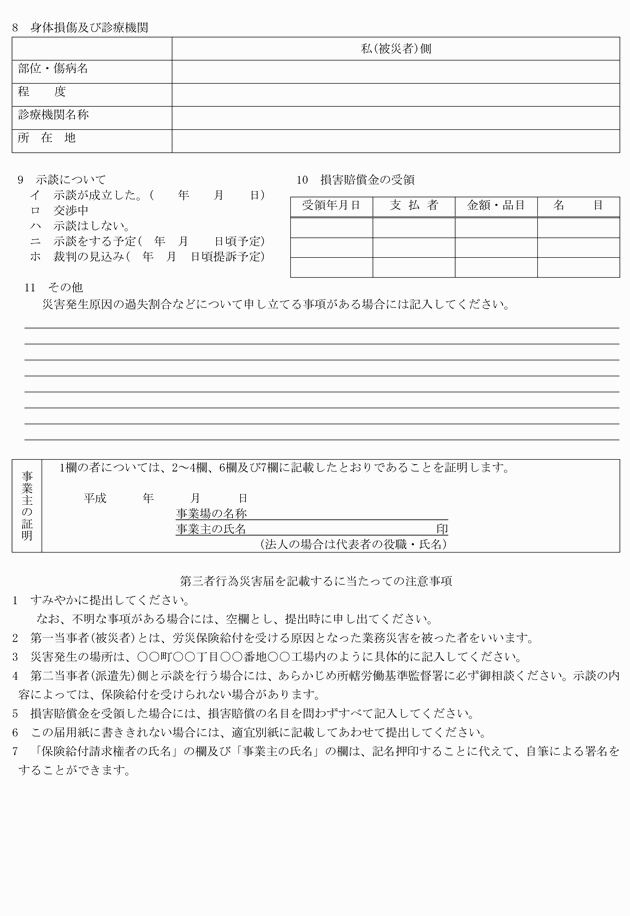 8　身体損傷及び診療機関
私(被災者)側
部位・傷病名
程　　度
診療機関名称
所　在　地
9　示談について
イ　示談が成立した。(　　年　　月　　日)
ロ　交渉中
ハ　示談はしない。
ニ　示談をする予定(　年　月　　日頃予定)
ホ　裁判の見込み(　年　月　日頃提訴予定)
10　損害賠償金の受領
受領年月日　支　払　者　金額・品目　名　　目
11　その他
災害発生原因の過失割合などについて申し立てる事項がある場合には記入してください。
事業主の証明
1欄の者については、2～4欄、6欄及び7欄に記載したとおりであることを証明します。
平成　　　年　　　月　　　日
事業場の名称
事業主の氏名　　　　　　　　　　　　　　　　印
(法人の場合は代表者の役職・氏名)
第三者行為災害届を記載するに当たっての注意事項
1　すみやかに提出してください。
なお、不明な事項がある場合には、空欄とし、提出時に申し出てください。
2　第一当事者(被災者)とは、労災保険給付を受ける原因となった業務災害を被った者をいいます。
3　災害発生の場所は、〇〇町〇〇丁目〇〇番地〇〇工場内のように具体的に記入してください。
4　第二当事者(派遣先)側と示談を行う場合には、あらかじめ所轄労働基準監督署に必ず御相談ください。示談の内
容によっては、保険給付を受けられない場合があります。
5　損害賠償金を受領した場合には、損害賠償の名目を問わずすべて記入してください。
6　この届用紙に書ききれない場合には、適宜別紙に記載してあわせて提出してください。
7　「保険給付請求権者の氏名」の欄及び「事業主の氏名」の欄は、記名押印することに代えて、自筆による署名を
することができます。